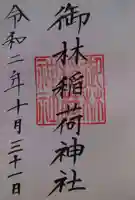 御林稲荷神社
令和二年十月三十一日